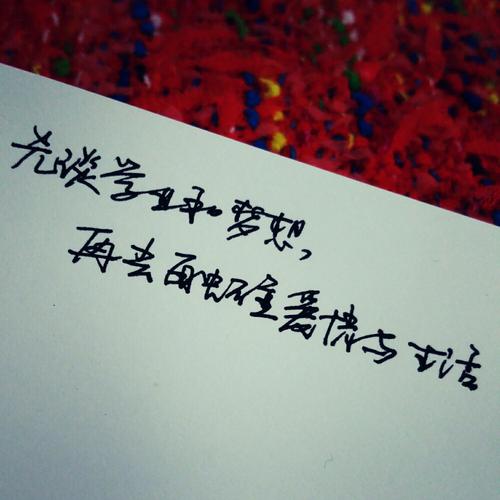 先谈学业和梦想,
再去面对爱情与生活